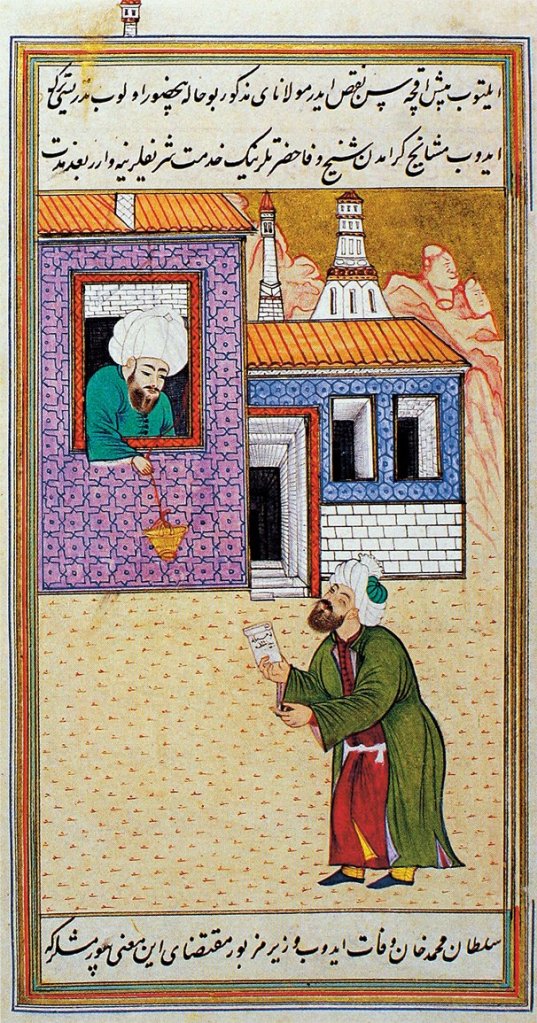 بیش اقچه سن نقص ایدر مولانای مذکور بو حاله بیحضور اولوب تدریسی
ایدوب مشایخ کرامدن شیخ وفا حضرتلرینک خدمت شریفلرینه وارر بعد مدت
سلطان محمد خان وفات ایدوب وزیر مزبور مقتضای این معنی